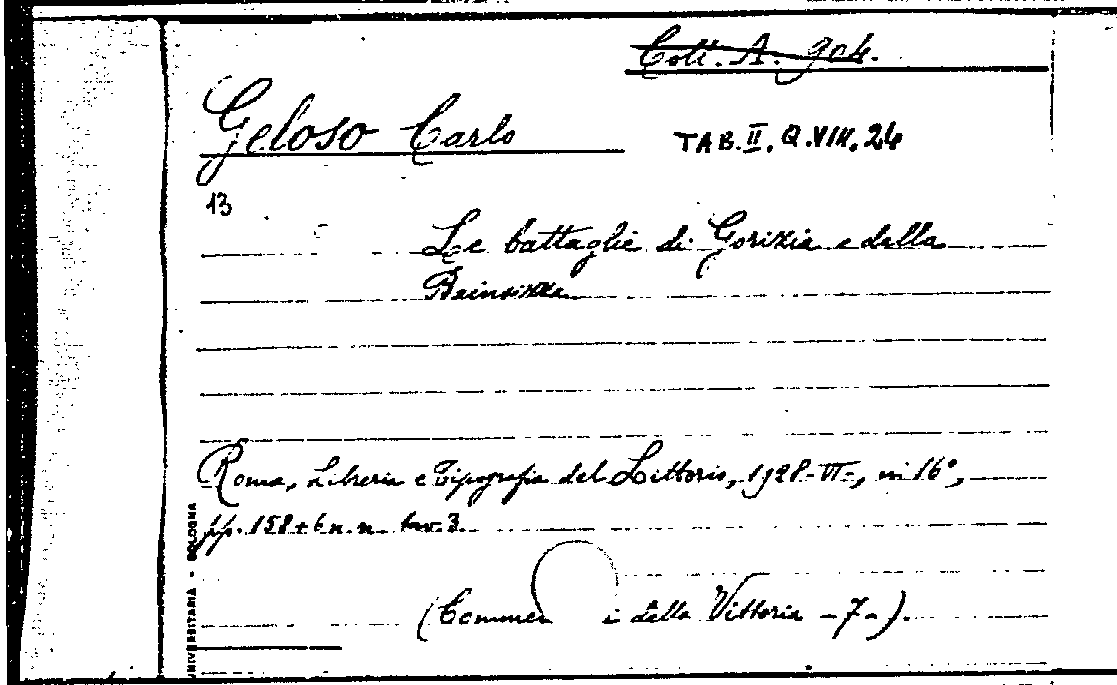 Coll. A. 904.
Geloso Carlo
TAB. II. Q. VIII. 24
13
Le battaglie di Gorizia e della
Bainsizza
Roma, Libreria e Tipografia del Littorio, 1928-VI-, in 16°,
pp. 158+6 n.n. tav. 3.
(Commen i della Vittoria -7-).
UNIVERSITARIA - BOLOGNA